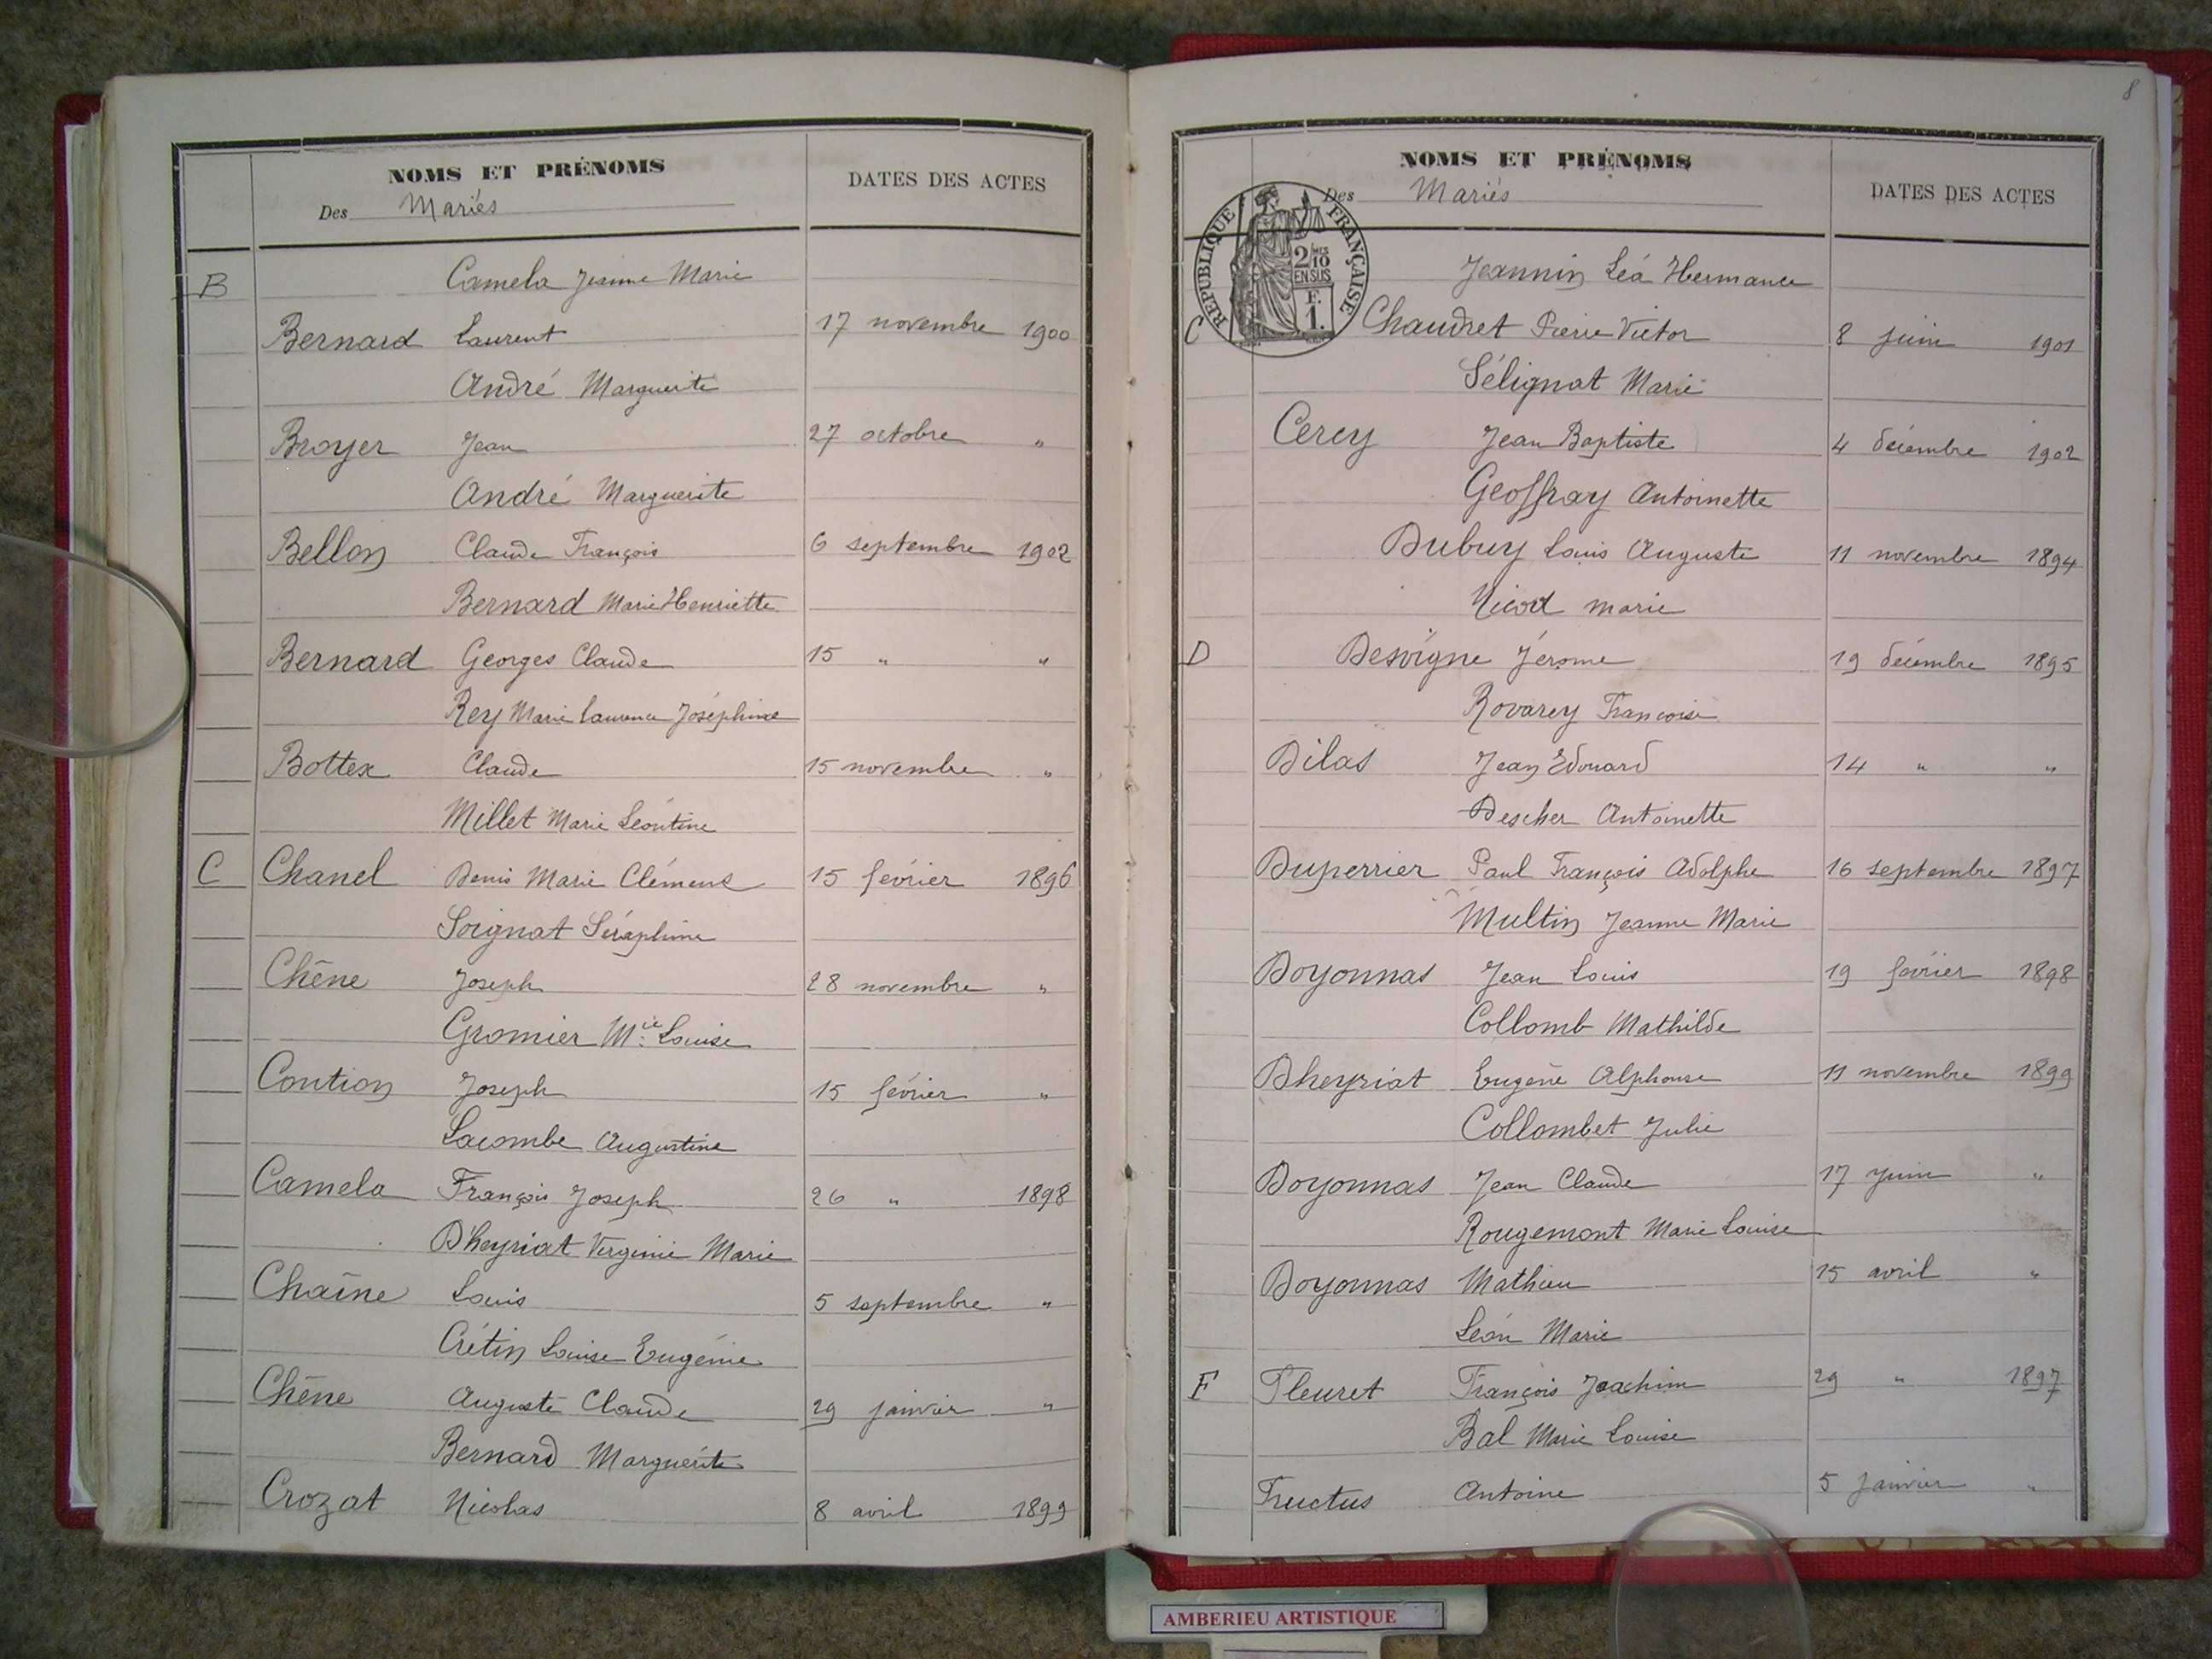 NOMS ET PRÉNOMS
Des Mariés
DATES DES ACTES
B Camela Jeanne Marie
Bernard Laurent 17 novembre 1900
André Marguerite
Broyer Jean 27 octobre "
André Marguerite
Bellon Claude François 6 septembre 1902
Bernard Marie Henriette
Bernard Georges Claude 15 " "
Rey Marie Laurence Joséphine
Bottex Claude 15 novembre "
Millet Marie Léontine
C Chanel Denis Marie Clémens 15 février 1896
Soignat Séraphine
Chêne Joseph 28 novembre "
Gromier Mie Louise
Contion Joseph 15 février "
Lacombe Augustine
Camela François Joseph 26 " 1898
Dheyriat Virginie Marie
Chaîne Louis 5 septembre "
Crétin Louise Eugénie
Chêne Auguste Claude 29 janvier "
Bernard Marguerite
Crozat Nicolas 8 avril 1899
8
NOMS ET PRÉNOMS
Des Mariés
DATES DES ACTES
RÉPUBLIQUE FRANÇAISE
2/10
EN SUS
F.
1.
Jeannin Léa Hermance
C Chaudret Pierre Victor 8 juin 1901
Sélignat Marie
Cercy Jean Baptiste 4 décembre 1902
Geoffray Antoinette
Dubuy Louis Auguste 11 novembre 1894
Nicod marie
D Desvigne Jérome 19 décembre 1895
Rovarey Françoise
Dilas Jean Edouard 14 " "
Descher Antoinette
Duperrier Paul François Adolphe 16 septembre 1897
Multin Jeanne Marie
Doyonnas Jean Louis 19 février 1898
Collomb Mathilde
Dheyriat Eugène Alphonse 11 novembre 1899
Collombet Julie
Doyonnas Jean Claude 17 juin "
Rougemont Marie Louise
Doyonnas Mathieu 15 avril "
Léon Marie
F Fleuret François Joachim 29 " 1897
Bal Marie Louise
Fructus Antoine 5 Janvier "
AMBERIEU ARTISTIQUE